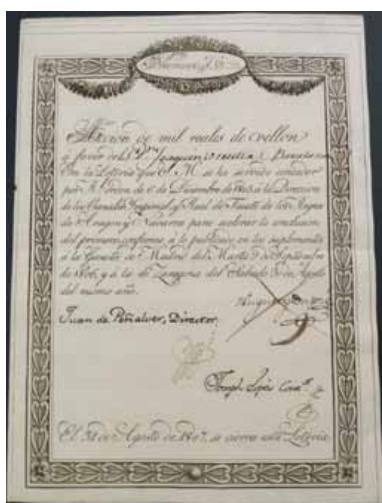 Accion de mil reales de vellon
à favor de D. Joaquin
En la Lotería que S. M. se ha servido conceder
por R. Orden de 6 de Diciembre de 1805 à la Direccion
de los Canales Imperial y Real de Tauste de los Reynos
de Aragon y Navarra para acelerar la conclusion
del primero, conforme à lo publicado en los suplementos
à la Gazeta de Madrid del Martes 9 de Septiembre
de 1806, y à la de Zaragoza del Sabado 30 de Agosto
del mismo año.
Juan de Peñalver, Director.
Joseph Lopez
El 31 de Agosto de 1807 se cierra esta Lotería